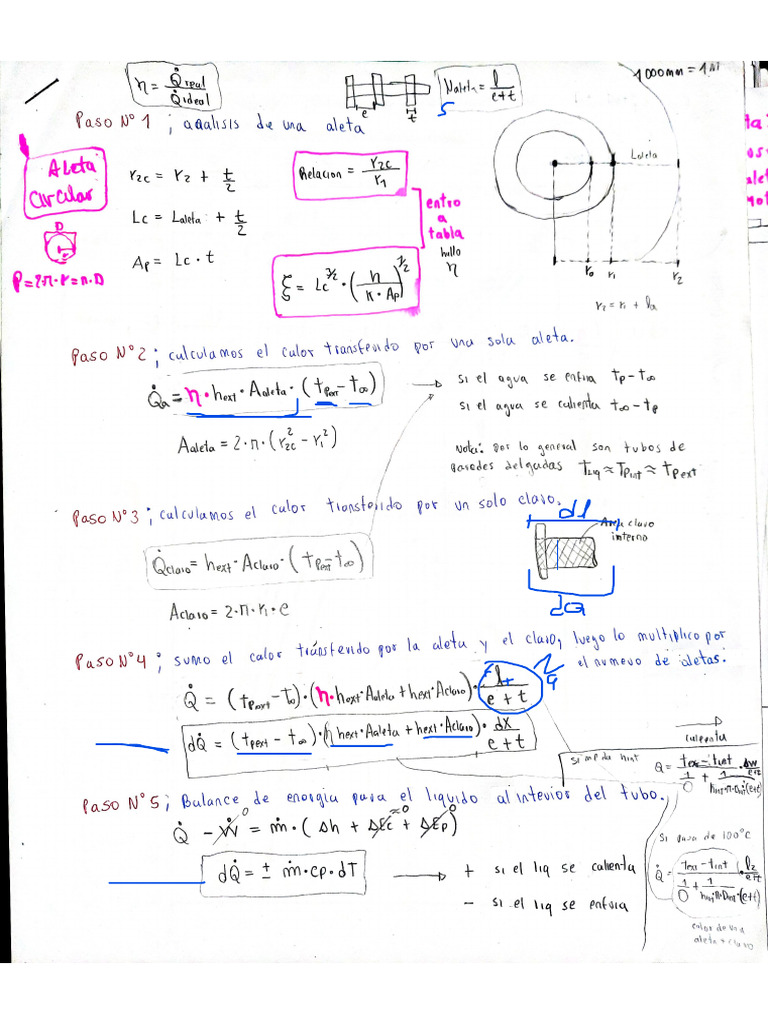 η = Q̇real / Q̇ideal
e
t
Naleta = l / e+t
1000mm = 1m
5
Paso N°1 ; aqalisis de una aleta
Aleta
circular
D
P=2·π·r=π·D
r2c = r2 + t/2
Lc = Laleta + t/2
Ap = Lc · t
Relacion = r2c / r1
entro
a
tabla
hallo
η
ξ = Lc^3/2 · (h / K · Ap)^1/2
Laleta
r0
r1
r2
r2 = r1 + la
Paso N°2 ; calculamos el calor transferido por una sola aleta.
Q̇a = η · hext · Aaleta · (tpext - t∞)
si el agua se enfira tp - t∞
si el agua se calienta t∞ - tp
Aaleta = 2 · π · (r2c² - r1²)
Nota: por lo general son tubos de
paredes delgadas TLiq ≈ TPint ≈ tpext
Paso N°3 ; calculamos el calor transferido por un solo claro.
dl
Area claro
interno
Q̇claro = hext · Aclaro · (tpext - t∞)
dQ
Aclaro = 2 · π · r1 · e
Paso N°4 ; sumo el calor tránsferido por la aleta y el claro, luego lo multiplico por
el numevo de aletas:
Q̇ = (tpext - t∞) · (η · hext · Aaleta + hext · Aclaro) · l / e + t
dQ̇ = (tpext - t∞) · (η hext · Aaleta + hext · Aclaro) · dx / e + t
calienta
Paso N°5 ; Balance de energia para el liquido al interior del tubo.
Q̇ - Ẇ = ṁ · ( Δh + ΔEc + ΔEp )
0
≈0
0
dQ̇ = ± ṁ · cp · dT
+ si el liq se calienta
- si el liq se enfria
si pasa de 100°C
calor de una
aleta + claro